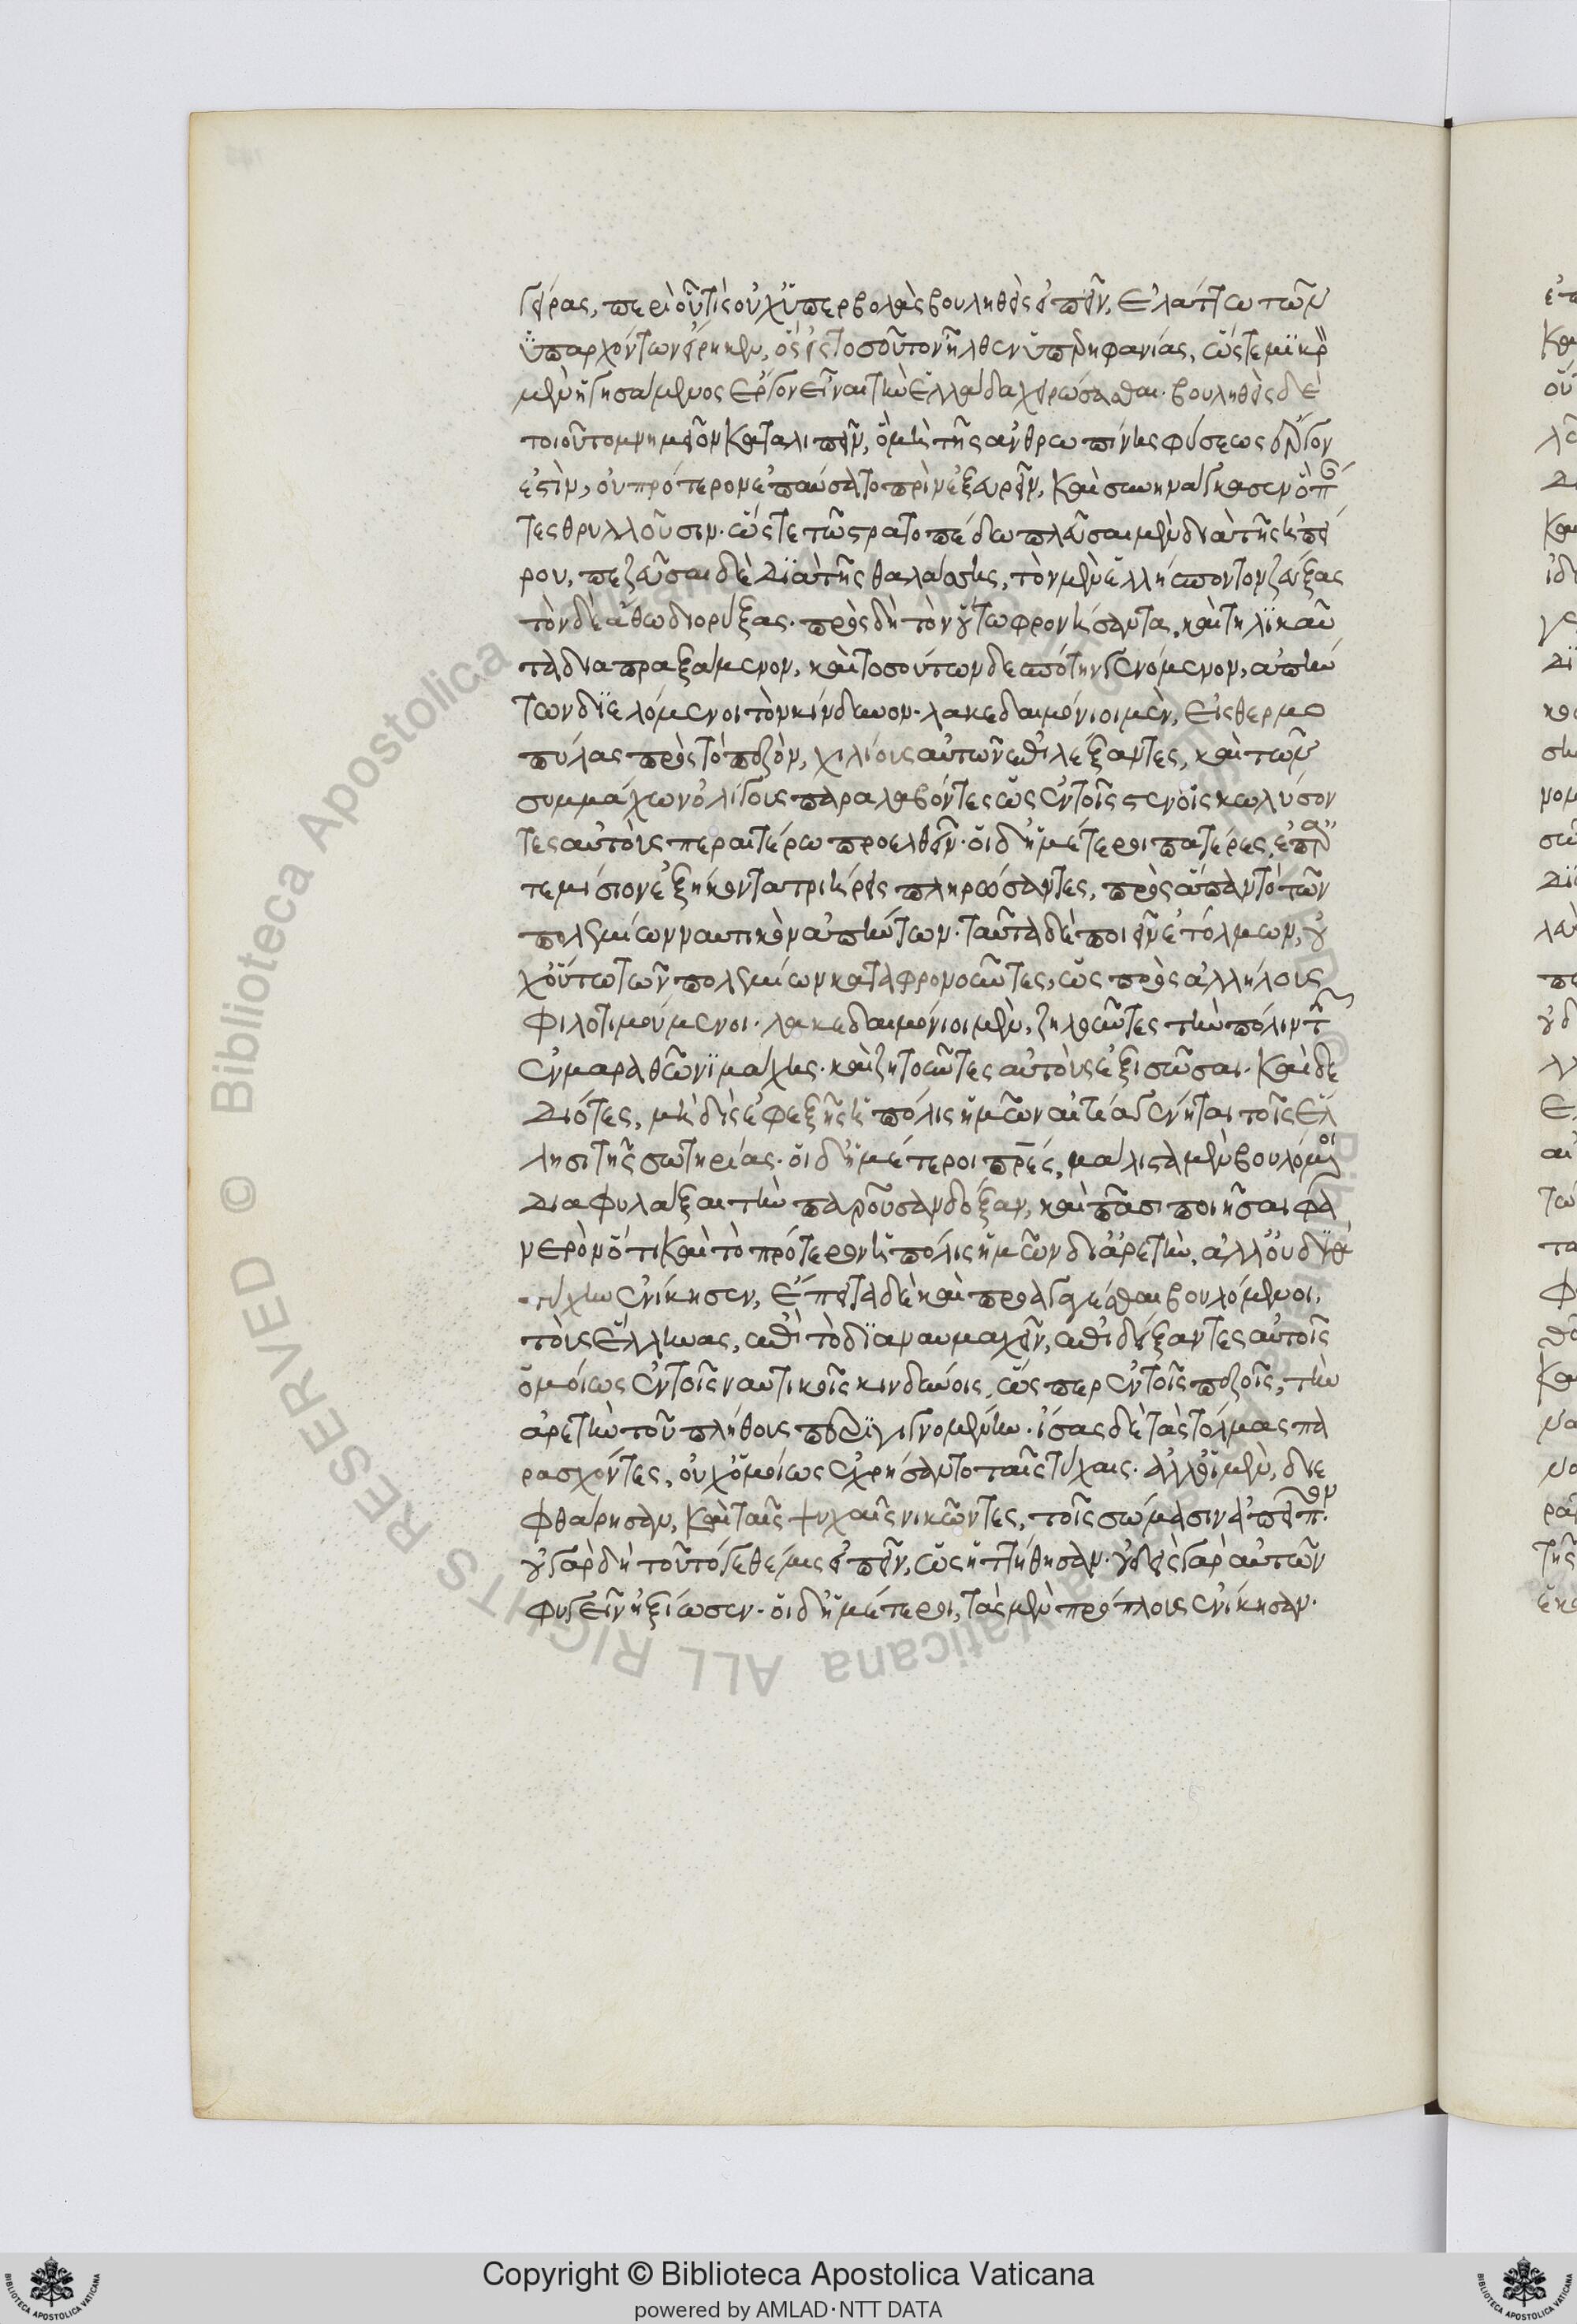 γείρας, περὶ οὗ τὶς οὐχ ὑπερβολὰς βουληθεὶς εἰπεῖν, ἐλάττω τῶν
ὑπαρχόντων εἴρηκεν, ὃς εἰς τοσοῦτον ἦλθεν ὑπερηφανίας, ὥστε μικρὸν
μὲν ἡγησάμενος ἔργον εἶναι τὴν ἑλλάδα χειρώσασθαι. βουληθεὶς δὲ
τοιοῦτο μνημεῖον καταλιπεῖν, ὃ μὴ τῆς ἀνθρωπίνης φύσεως ἔργον
ἐστὶν, οὐ πρότερον ἐπαύσατο πρὶν ἐξευρεῖν, καὶ συνηνάγκασεν ὃ πάν
τες θρυλλοῦσιν. ὥστε τῶ στρατοπέδω πλεῦσαι μὲν διὰ τῆς ἠπεί
ρου, πεζεῦσαι δὲ διὰ τῆς θαλάσσης, τὸν μὲν ἑλλήσποντον ζεύξας
τὸν δὲ ἄθω διορύξας. πρὸς δὴ τὸν οὕτω φρονήσαντα, καὶ τηλικαῦ
τα διαπραξάμενον, καὶ τοσούτων δεσπότην γενόμενον, ἀπήν
των διελόμενοι τὸν κίνδυνον. λακεδαιμόνιοι μὲν, εἰς θερμο
πύλας πρὸς τὸ πεζὸν, χιλίους αὐτῶν ἐπιλέξαντες, καὶ τῶν
συμμάχων ὀλίγους παραλαβόντες ὡς ἐν τοῖς στενοῖς κωλύσον
τες αὐτοὺς περαιτέρω προελθεῖν. οἱ δ' ἡμέτεροι πατέρες, ἐπ' ἀρ
τεμίσιον ἑξήκοντα τριήρεις πληρώσαντες, πρὸς ἅπαν τὸ τῶν
πολεμίων ναυτικὸν ἀπήντων. ταῦτα δὲ ποιεῖν ἐτόλμων, οὐ
χ οὕτω τῶν πολεμίων καταφρονοῦντες, ὡς πρὸς ἀλλήλους
φιλοτιμούμενοι. λακεδαιμόνιοι μὲν, ζηλοῦντες τὴν πόλιν τῆς
ἐν μαραθῶνι μάχης. καὶ ζητοῦντες αὐτοὺς ἐξισῶσαι. καὶ δε
διότες, μὴ δὶς ἐφεξῆς ἡ πόλις ἡμῶν αἰτία γένηται τοῖς ἕλ
λησι τῆς σωτηρίας. οἱ δ' ἡμέτεροι πρες, μάλιστα μὲν βουλόμενοι
διαφυλάξαι τὴν παροῦσαν δόξαν, καὶ πᾶσι ποιῆσαι φα
νερὸν ὅτι καὶ τὸ πρότερον ἡ πόλις ἡμῶν δι' ἀρετὴν, ἀλλ' οὐ διὰ
τύχην ἐνίκησεν, ἔπειτα δὲ καὶ προαγαγέσθαι βουλόμενοι,
τοὺς ἕλληνας, ἐπὶ τὸ διαναυμαχεῖν, ἐπιδείξαντες αὐτοῖς
ὁμοίως ἐν τοῖς ναυτικοῖς κινδύνοις, ὥσπερ ἐν τοῖς πεζοῖς, τὴν
ἀρετὴν τοῦ πλήθους περιγιγνομένην. ἴσας δὲ τὰς τόλμας πα
ρασχόντες, οὐχ ὁμοίως ἐχρήσαντο ταῖς τύχαις. ἀλλ' οἱ μὲν, διε
φθάρησαν, καὶ ταῖς ψυχαῖς νικῶντες, τοῖς σώμασιν ἀπεῖπον.
οὐ γὰρ δὴ τοῦτό γε θέμις εἰπεῖν, ὡς ἡττήθησαν. οὐδεὶς γὰρ αὐτῶν
φυγεῖν ἠξίωσεν. οἱ δ' ἡμέτεροι, τὰς μὲν πρόπλους ἐνίκησαν.
Copyright © Biblioteca Apostolica Vaticana
powered by AMLAD·NTT DATA